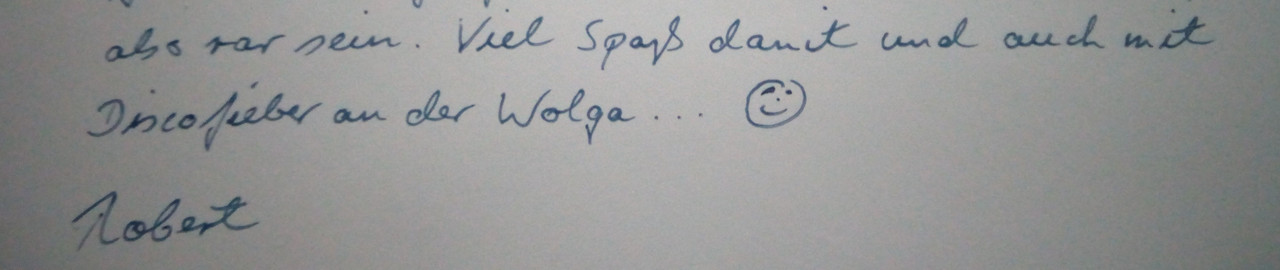 also rar sein. Viel Spaß damit und auch mit
Discofieber an der Wolga... ☺
Robert